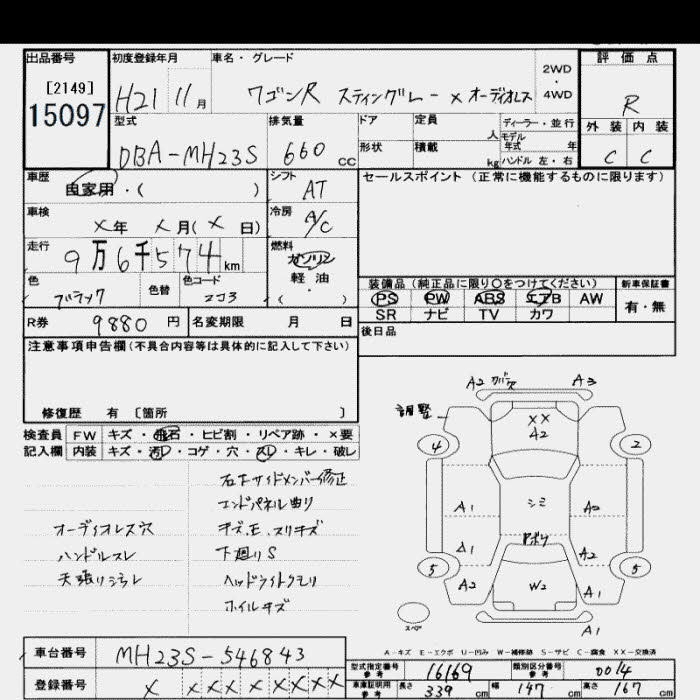 出品番号
[2149]
15097
初度登録年月
H21 11月
車名・グレード
ワゴンR スティングレー × オーディオレス
2WD
・
4WD
評価点
R
外装 内装
C C
型式
DBA-MH23S
排気量
660 cc
ドア
定員
人
ディーラー・並行
モデル
年式 年
形状
積載
kg
ハンドル 左・右
車歴
自家用・( )
シフト
AT
セールスポイント (正常に機能するものに限ります)
車検
×年 ×月(× 日)
冷房
A/C
走行
9万6千574km
燃料
ガソリン
・
軽油
・
( )
色
ブラック
色替
色コード
ZJ3
装備品 (純正品に限り〇をつけてください)
新車保証書
PS PW ABS エアB AW
有・無
SR ナビ TV カワ
R券 9880 円
名変期限 月 日
後日品
注意事項申告欄(不具合内容等は具体的に記入して下さい)
修復歴 有 〔箇所 〕
検査員 FW キズ・飛石・ヒビ割・リペア跡・×要
記入欄 内装 キズ・汚レ・コゲ・穴・スレ・キレ・破レ
オーディオレス穴
ハンドルスレ
天張リシラレ
右下サイドメンバー修正
エンドパネル曲り
キズ、E、スリキズ
下廻りS
ヘッドライトクモリ
ホイルキズ
A2 カバー欠 A3
調整
××
A2
4 2
A1 シミ A2
A1 Pボリ A2
5 5
A2 W2 A1
A1
スペア
A-キズ E-エクボ U-凹み W-補修跡 S-サビ C-腐食 XX-交換済
車台番号 MH23S-546843
登録番号 × ××××××××
型式指定番号
参考
16169
類別区分番号
参考
0014
車庫証明用
参考
長さ 339 cm 幅 147 cm 高さ 167 cm